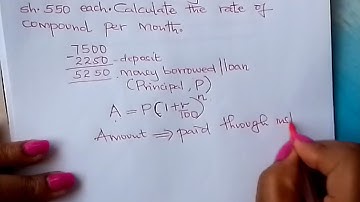 sh. 550 each. Calculate the rate of
compound per month.
7500
-2250 - deposit
5250 money borrowed/loan
(Principal, P)
A = P(1+r/100)^n
Amount ⇒ paid through